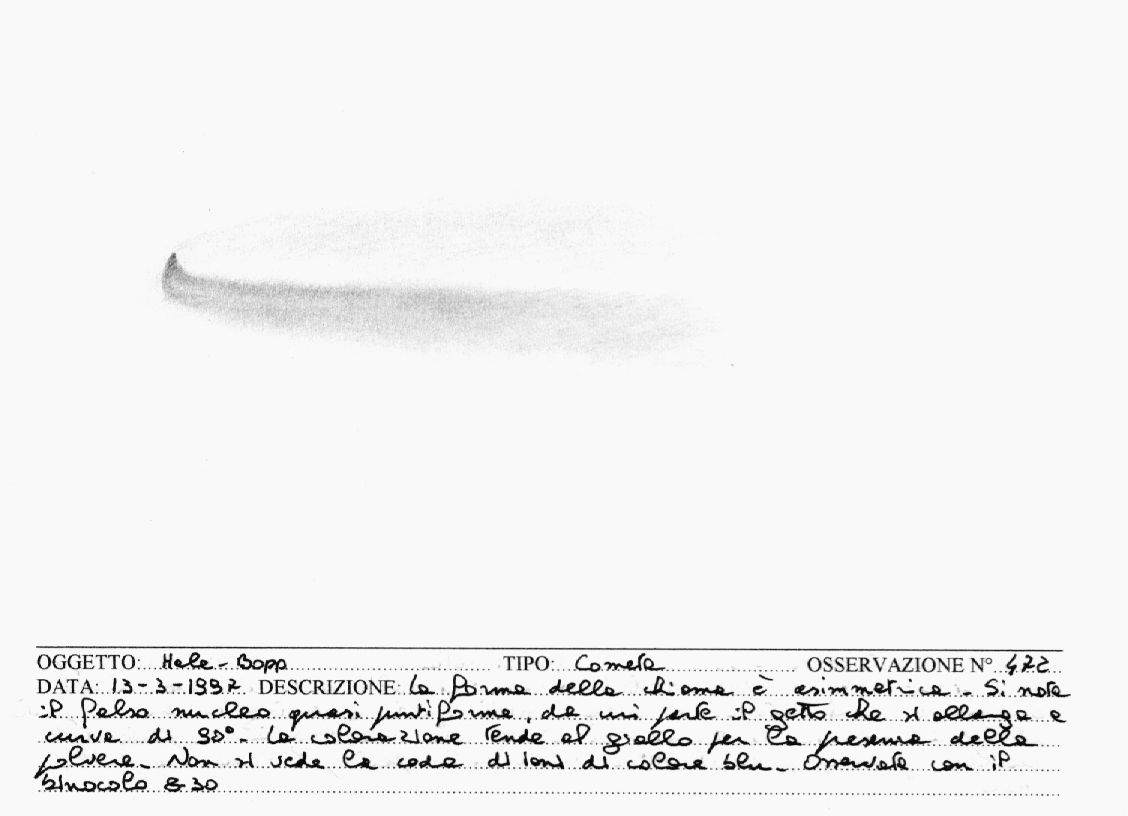 OGGETTO: Hale-Bopp TIPO: Cometa OSSERVAZIONE N° 472
DATA: 13-3-1997 DESCRIZIONE: La forma della chioma è asimmetrica. Si nota
il falso nucleo quasi puntiforme, da cui parte il getto che si allunga e
curva di 90°. La colorazione tende al giallo per la presenza della
polvere. Non si vede la coda di ioni di colore blu. Osservata con il
binocolo 8x30